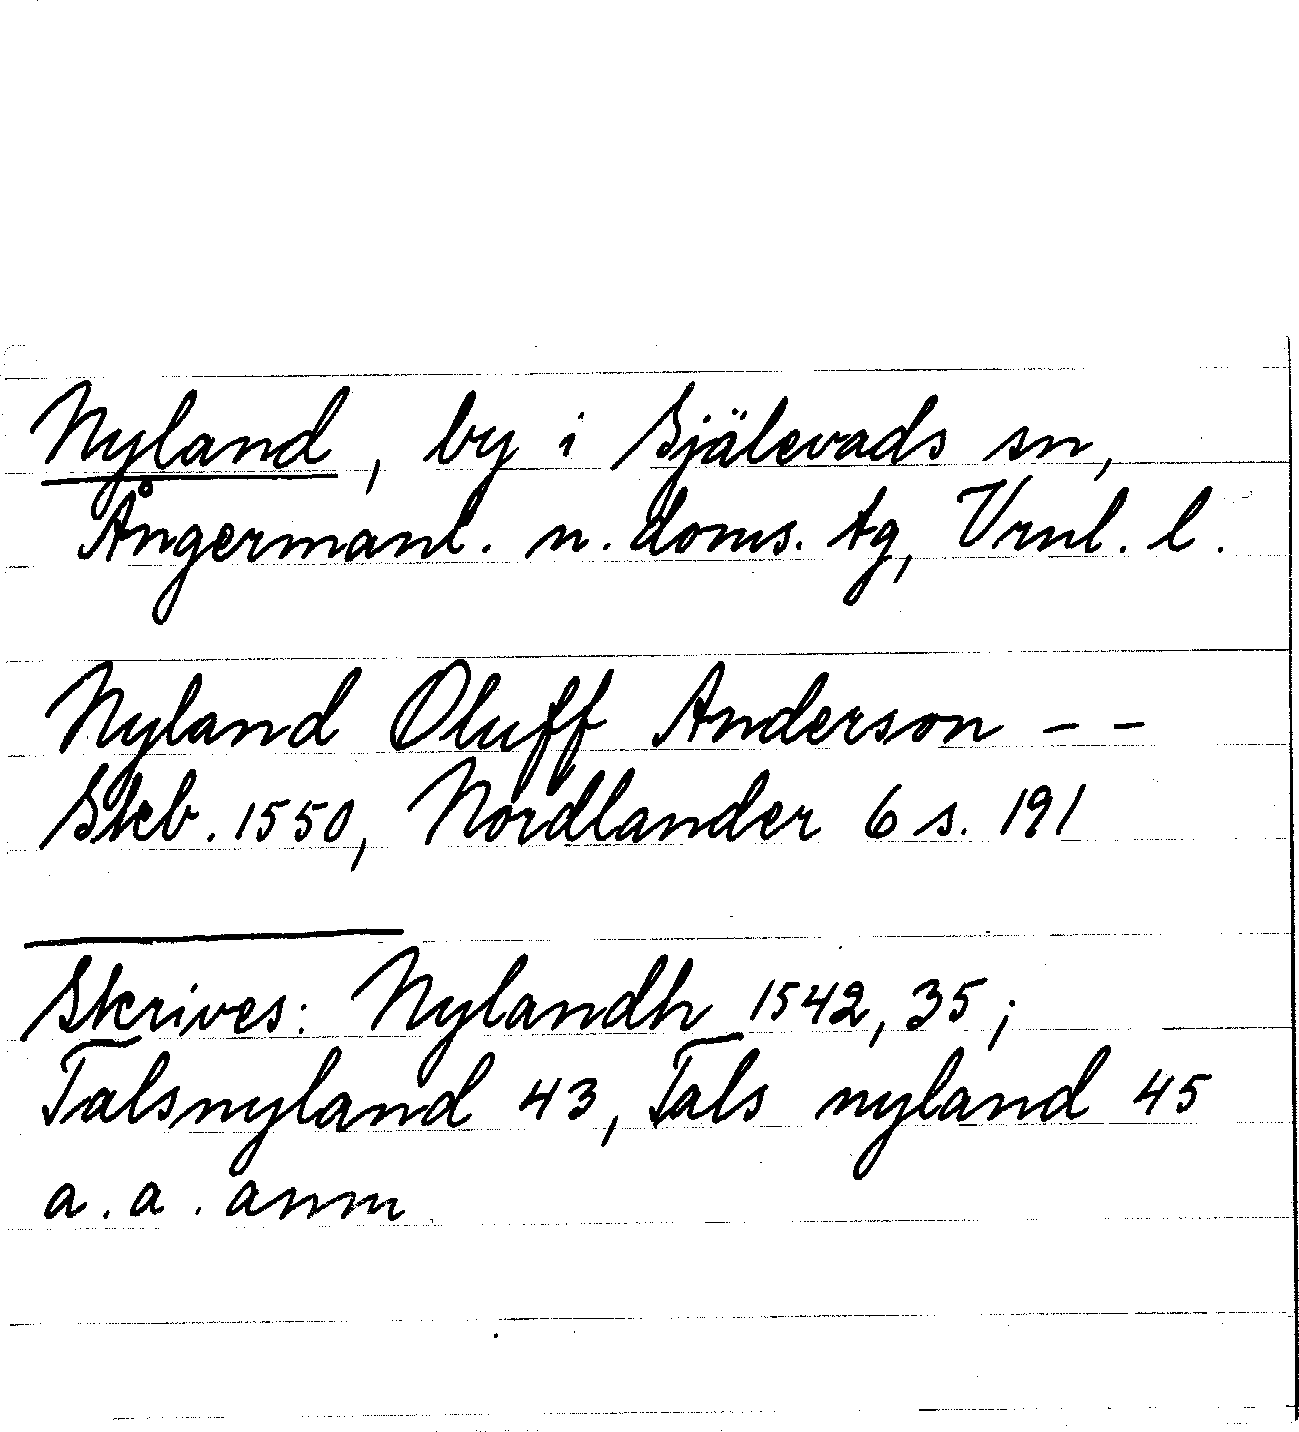 Nyland, by i Själevads sn,
Ångermanl. n. doms. tg, Vrnl. l.
Nyland Oluff Anderson - -
Skb. 1550, Nordlander 6 s. 191
Skrives: Nylandh 1542, 35;
Talsnyland 43, Tals nyland 45
a. a. anm